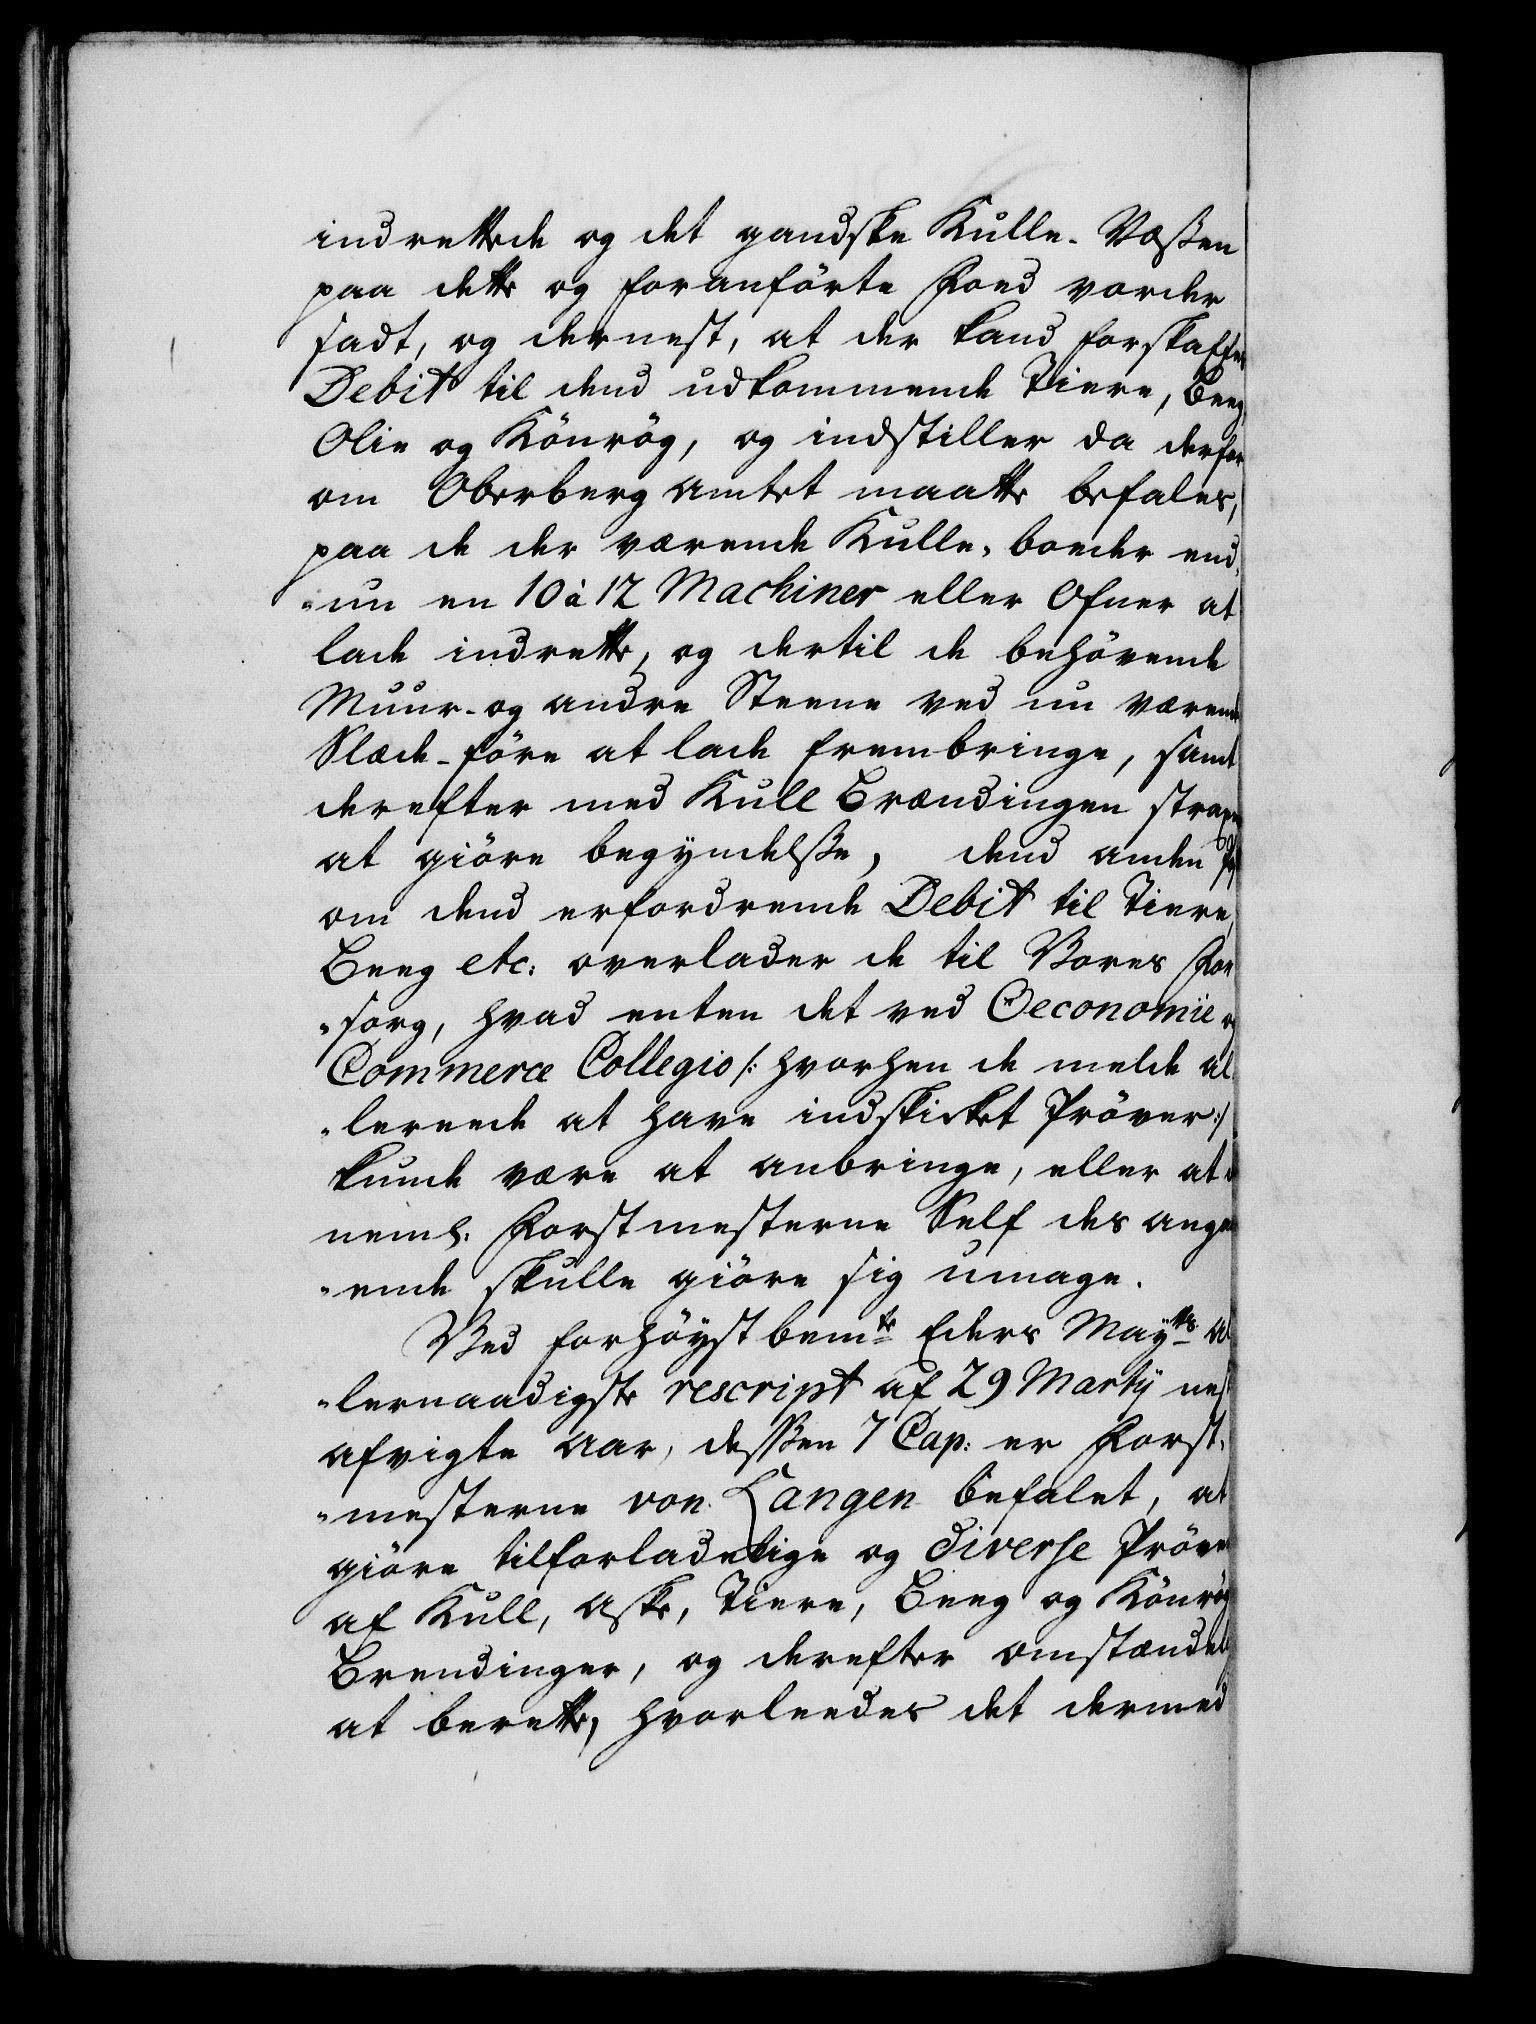 indrettede og det gandske Kulle-Væßen
paa dette og foranførte Foed vorder
sadt, og dernest, at der kand forskaffes
Debit til dend udkommende Tiere, Beeg,
Olie og Könrög, og indstiller da derfor
om Oberbergamtet maatte befales,
paa de der værende Kulle-boeder end-
"nu en 10 à 12 Machiner eller Ofner at
lade indrette, og dertil de behövende
Muur- og andre Steene ved nu værende
Slæde-före at lade frembringe, samt
derefter med Kull Brændingen strax
at giöre begyndelße, dend anden
om dend erfordrende Debit til Tiere,
Beeg etc: overlader de til Vores For
"sorg, hvad enten det ved Oeconomie og
Commerce Collegio /: hvorhen de melde al
"lereede at have indskicket Pröver:/
kunde være at anbringe, eller at
neml. Forstmesterne Self des ange
"ende skulle giöre sig umage.
Ved forhöystbemte Eders Mayts al
"lernaadigste rescript af 29 Martÿ nest
afvigte Aar, desßen 7 Cap: er Forst-
"mesterne von Langen befalet, at
giöre tilforladelige og diverse Pröver
af Kull, Aske, Tiere, Beeg og Könrög
Brendinger, og derefter omstændel
at berette, hvorleedes det dermed